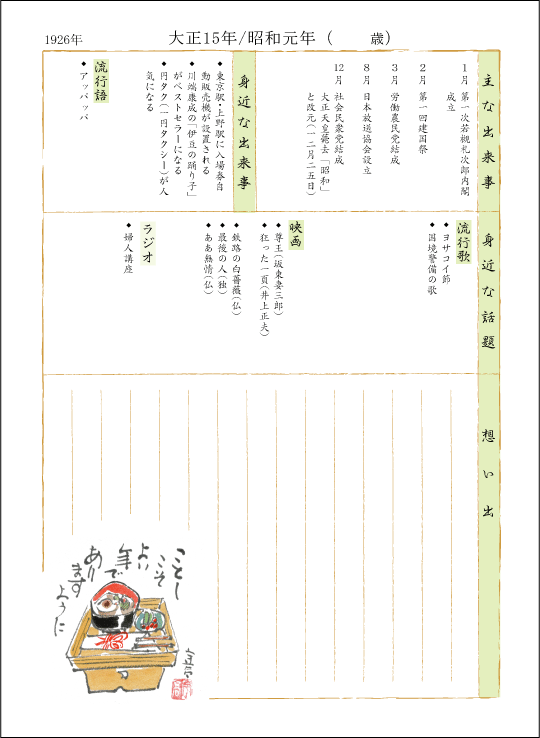 1926年
大正15年/昭和元年（　　歳）
主な出来事
1月 第一次若槻礼次郎内閣
成立
2月 第一回建国祭
3月 労働農民党結成
8月 日本放送協会設立
12月 社会民衆党結成
大正天皇薨去「昭和」
と改元(一二月二五日)
身近な出来事
◆ 東京駅・上野駅に入場券自
動販売機が設置される
◆ 川端康成の「伊豆の踊り子」
がベストセラーになる
◆ 円タク(一円タクシー)が人
気になる
流行語
◆ アッパッパ
身近な話題
流行歌
◆ ヨサコイ節
◆ 国境警備の歌
映画
◆ 尊王(坂東妻三郎)
◆ 狂った一頁(井上正夫)
◆ 鉄路の白薔薇(仏)
◆ 最後の人(独)
◆ ああ無情(仏)
ラジオ
◆ 婦人講座
想い出
ことし
こそ
よい
年で
あり
ます
ように